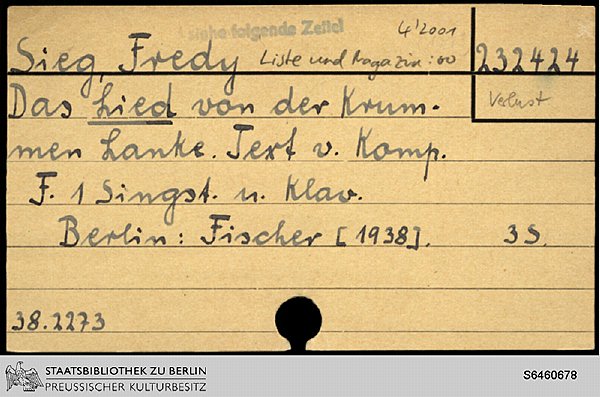 siehe folgende Zettel
4/2001
Sieg, Fredy Liste und Magazin: oo 232424
Das Lied von der Krum- Verlust
men Lanke. Text v. Komp.
F. 1 Singst. u. Klav.
Berlin: Fischer [1938]. 3 S.
38.2273
STAATSBIBLIOTHEK ZU BERLIN
PREUSSISCHER KULTURBESITZ
S6460678